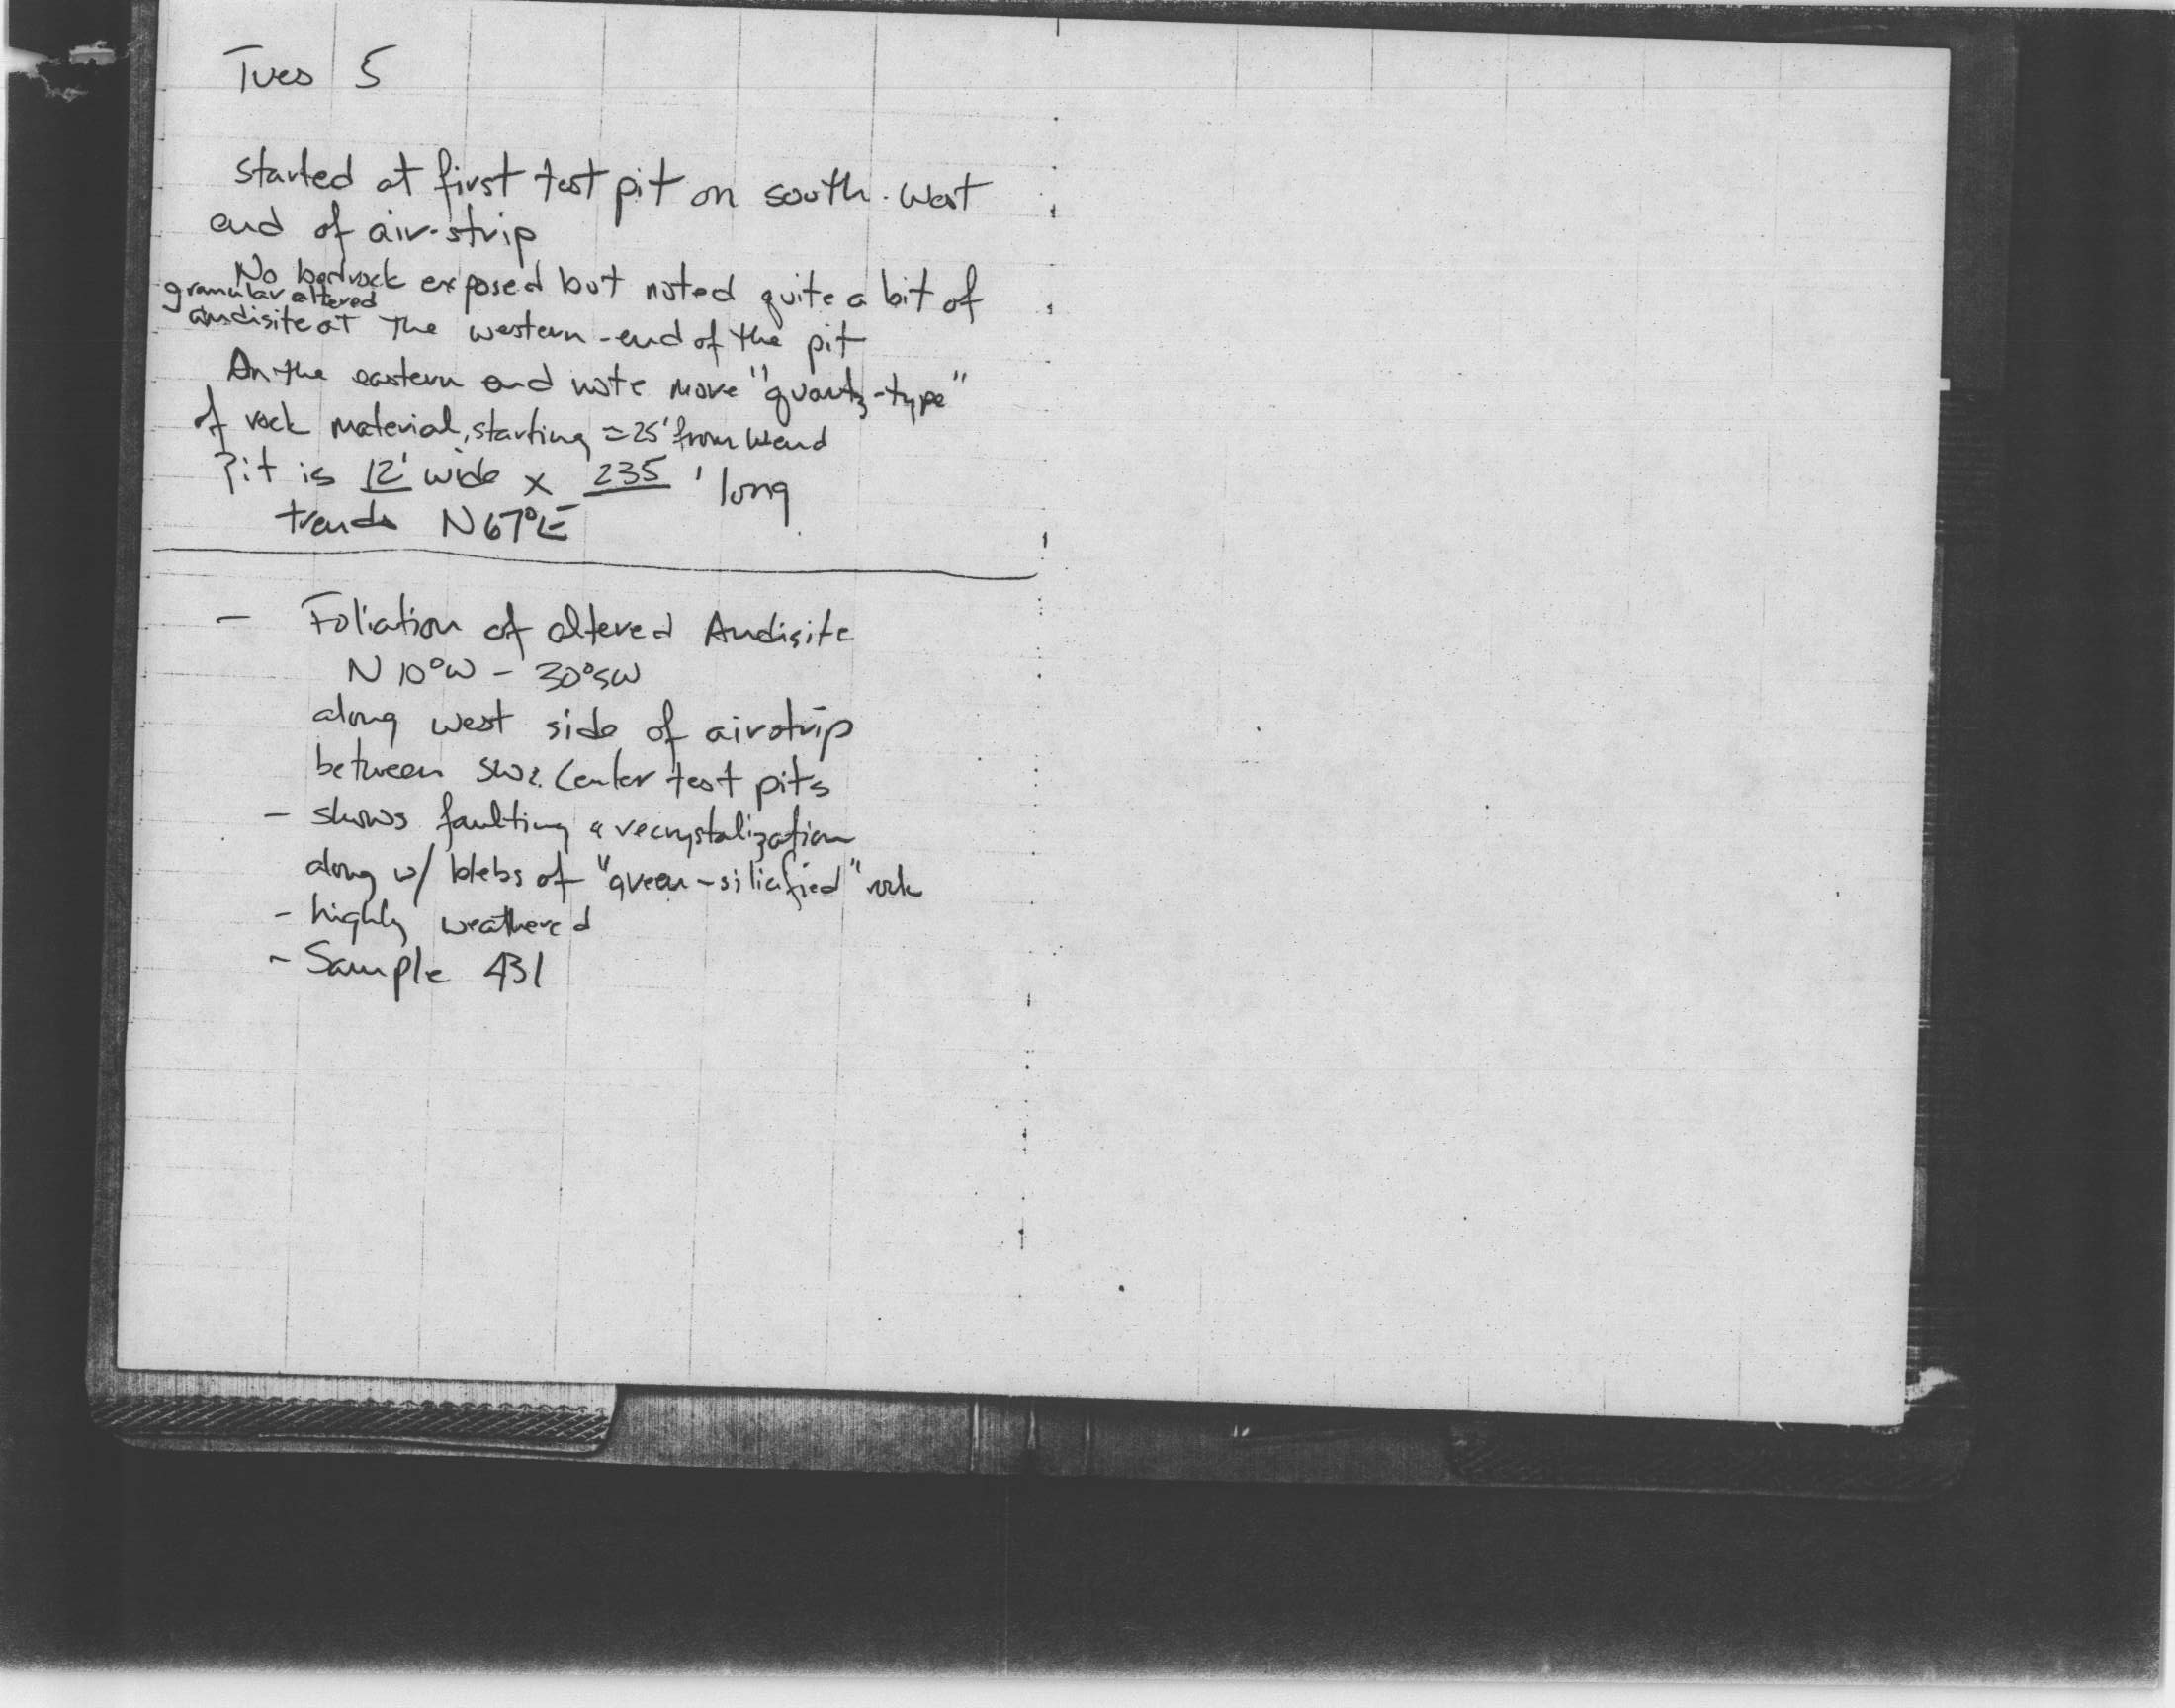 Tues 5
started at first test pit on south-west
end of air-strip
No bedrock exposed but noted quite a bit of
granular altered
andisite at the western-end of the pit
On the eastern end note more "quartz-type"
of rock material, starting ≈ 25' from W end
Pit is 12' wide x 235' long
trends N67°E
- Foliation of altered Andisite
N 10°W - 30°SW
along west side of airstrip
between SW & Center test pits
- shows faulting & recrystalization
along w/ blebs of "green-silicified" rock
- highly weathered
- Sample 431